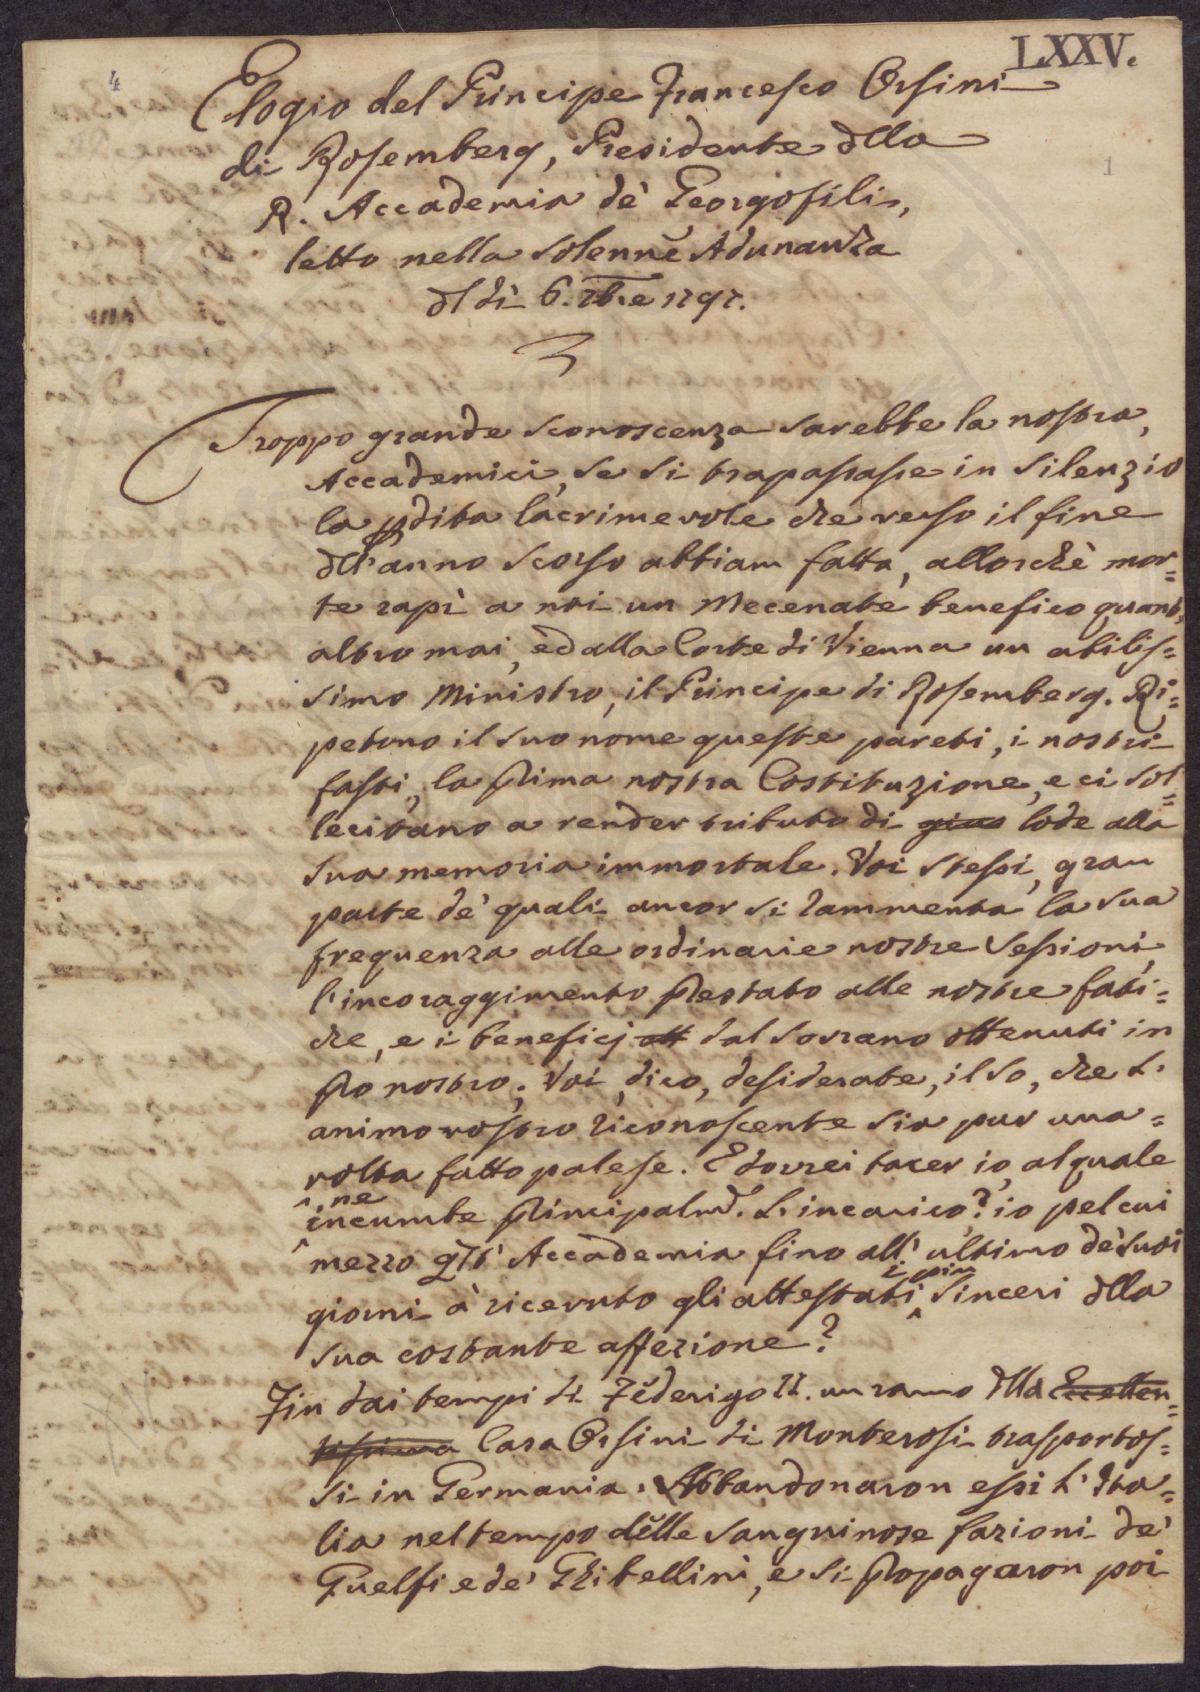 LXXV.
4
Elogio del Principe Francesco Orsini
di Rosemberg, Presidente dlla
1
R. Accademia de' Georgofili,
letto nella solenne Adunanza
dl dì 6. 7bre 1797.
Troppo grande sconoscenza sarebbe la nostra,
Accademici, se si trapassasse in silenzio
la pdita lacrimevole che verso il fine
dll'anno scorso abbiam fatta, allorchè mor=
te rapì a noi un Mecenate benefico quant'
altro mai, ed alla Corte di Vienna un abilis=
simo Ministro, il Principe di Rosemberg. Ri=
petono il suo nome queste pareti, i nostri
fasti, la Prima nostra Costituzione, e ci sol=
lecitano a render tributo di lode alla
sua memoria immortale. Voi stessi, gran
parte de' quali ancor si rammenta la sua
frequenza alle ordinarie nostre Sessioni,
l'incoraggimento Prestato alle nostre fati=
che, e i beneficj att dal Sovrano ottenuti in
Pro nostro; Voi, dico, desiderate, il so, che l'
animo vostro riconoscente sia pur una=
volta fatto palese. E dovrei tacer io, al quale
ne
incumbe Principalm. l'incarico? io pel cui
mezzo qta Accademia fino all'ultimo de' suoi
i più
giorni à ricevuto gli attestati sinceri dlla
sua costante affezione?
Fin dai tempi di Federigo II. un ramo dlla Eccellen=
tissima Casa Orsini di Monterosi trasportos=
si in Germania. Abbandonaron essi l'Ita=
lia nel tempo delle sanguinose fazioni de'
Guelfi e de' Ghibellini, e si Propagaron poi